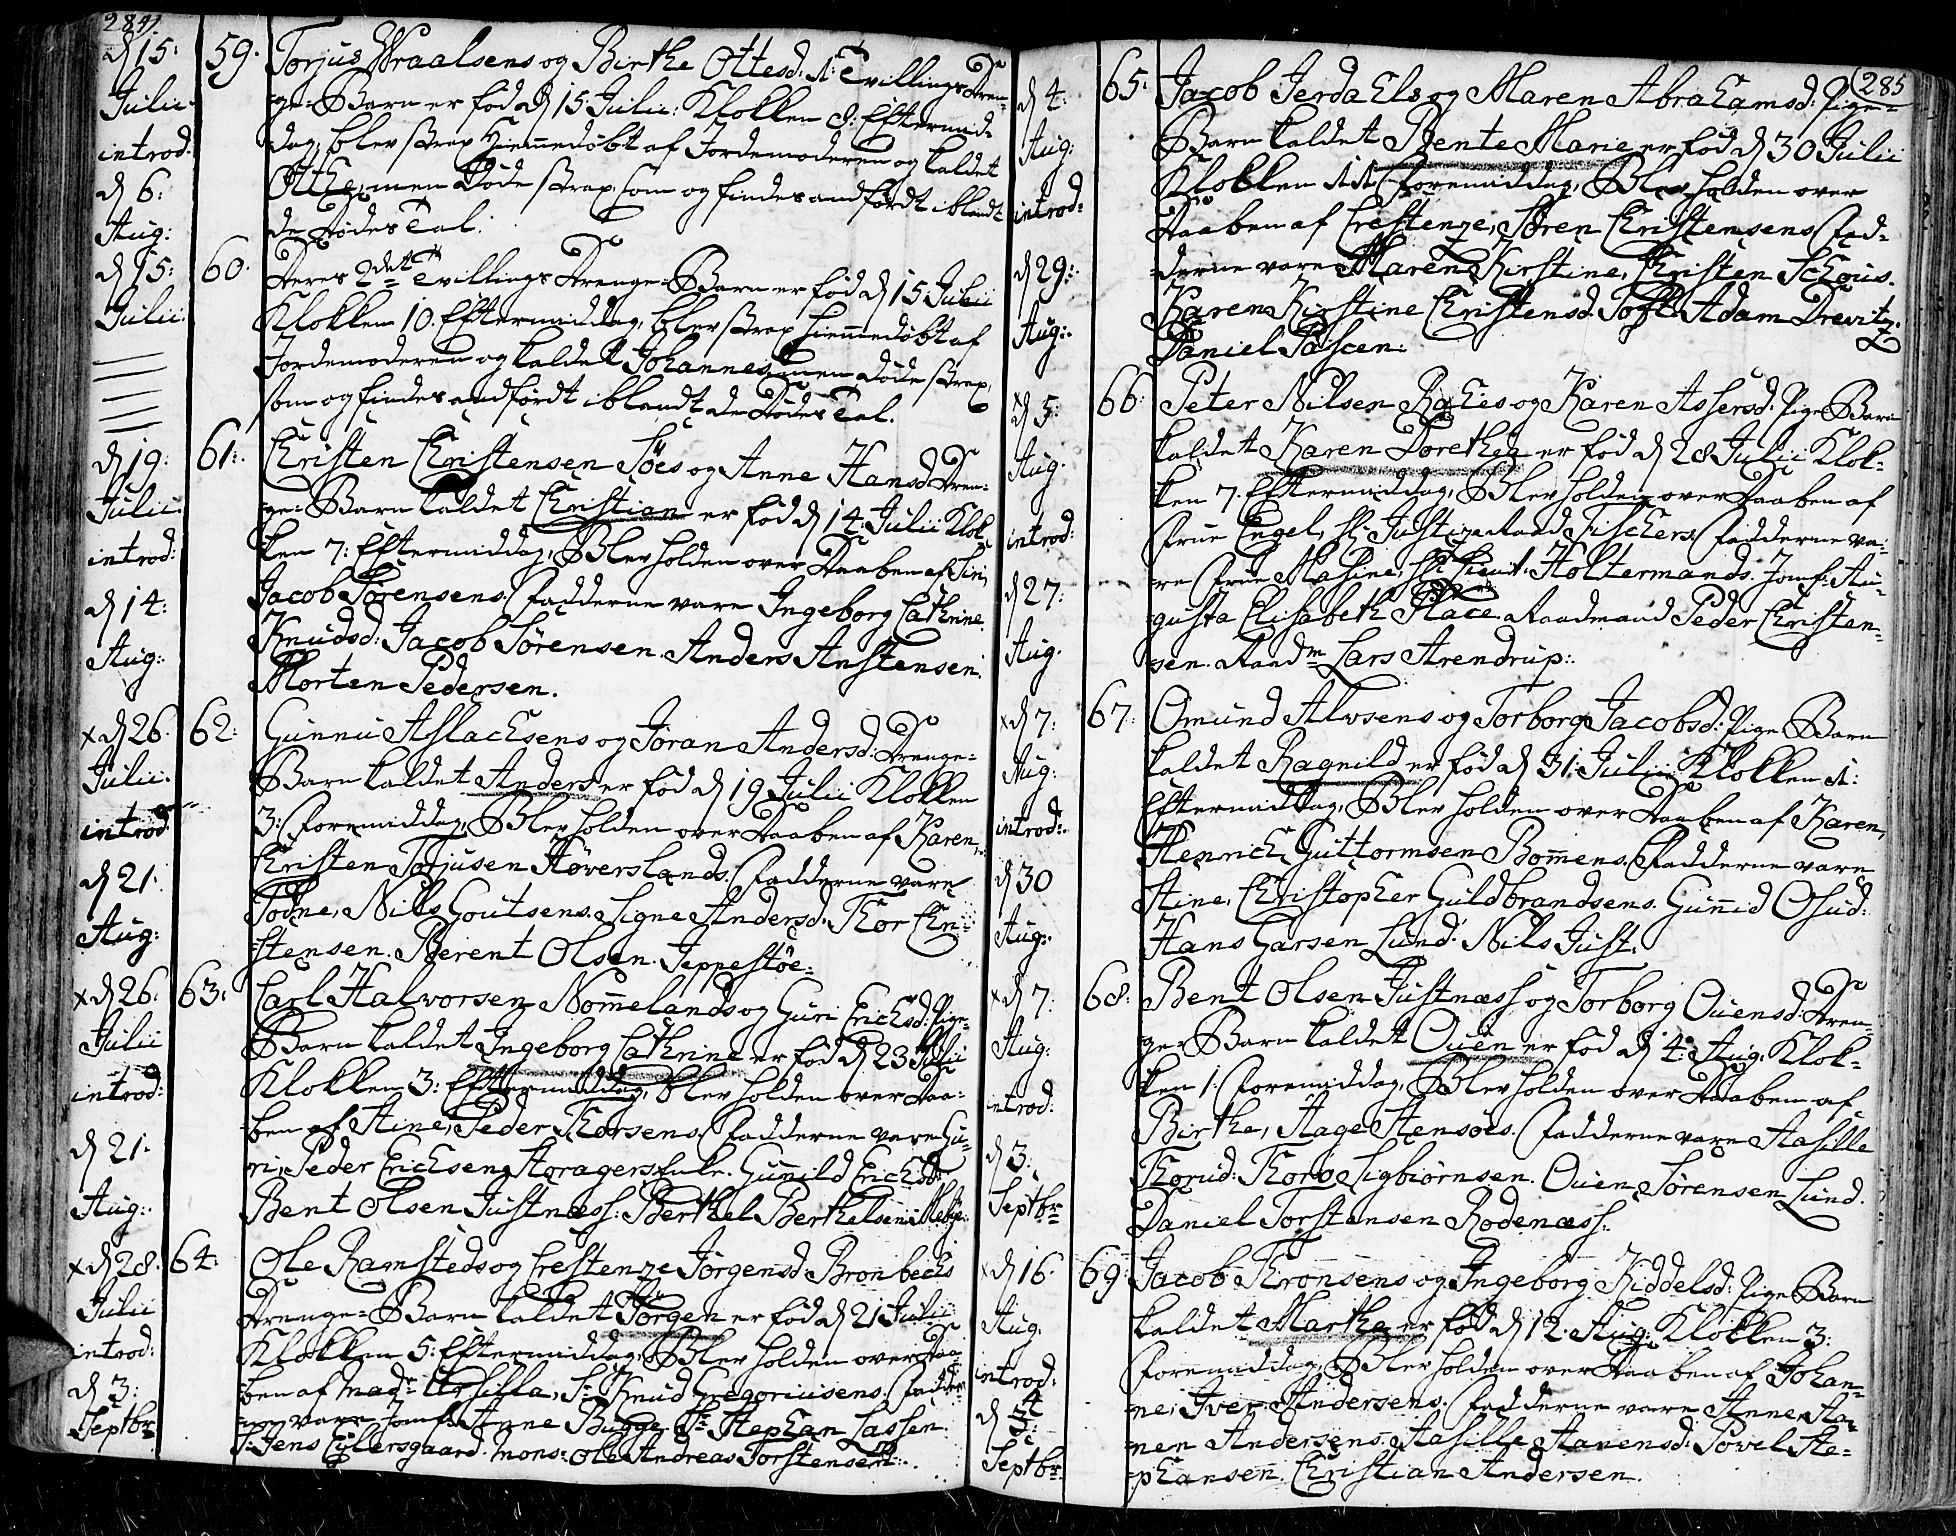 284.
d 15:
Julii
introd:
d 6:
Aug:
59.
Torjus Wraalsens og Birthe Ottesd: 1: Tvillings Dren-
ge-Barn er fød d 15 Julii: Klokken 8: Eftermid-
dag, blev strax Hjemmedøbt af Jordemoderen og kaldet
Otthe, men Døde strax, som og findes andført iblandt
de Dødes Tal.
d 15:
Julii:
60.
Deres 2det Tvillings Drenge-Barn er fød d 15 Julii
Klokken 10. Eftermiddag, blev strax hjemmedøbt af
Jordemoderen og kaldet Johannes, men Døde strax,
som og findes andført iblandt de Dødes Tal.
d 19:
Julii:
introd:
d 14:
Aug:
61:
Christen Christensen Söes og Anne Hansd: Dren-
ge-Barn kaldet Christian er fød d 14 Julii Klok-
ken 7: Eftermiddag, Blev holden over Daaben af Siri,
Jacob Sørensens. Fadderne vare Ingeborg Cathrine
Knudsd: Jacob Sørensen. Anders Anstensen.
Morten Pedersen.
x d 26.
Julii.
introd:
d 21.
Aug:
62:
Gunnu Aslachsens og Jøran Andersd: Drenge-
Barn kaldet Anders er fød d 19 Julii Klokken
3: Foremiddag, Blev holden over Daaben af Karen,
Christen Torjusen Høverslands. Fadderne vare
Todne, Nills Goutsens. Signe Andersd. Thor Chri-
stensen. Berent Olsen. Jeppestøe.
x d 26.
Julii
introd:
d 21.
Aug:
63:
Carl Halvorsen Nommelands og Guri Erichsd: Pige-
Barn kaldet Ingeborg Cathrine er fød d 23 Julii
Klokken 3: Eftermiddag, blev holden over Daa-
ben af Stine, Peder Thorsens. Fadderne vare Gu-
ri, Peder Erichsen Skragers Enke. Gunild Erichsdr
Bent Olsen Justnæss. Berthel Berthelsen
x d 28.
Julii
introd:
d 3:
Septbr
64:
Ole Ramsteds og Crestenze Jørgensd. Bronbechs
Drenge-Barn kaldet Jørgen er fød d 21 Julii
Klokken 5: Eftermiddag, Blev holden over Daa-
ben af Madr Ursilla, Sr Knud Gregoriusens. Fadder-
ne vare Jomf. Anne Bugge, Sr Stephan Lassen.
S: Jens Eylersgaard. Mons: Ole Andreas Torstensen.
285
d 4:
Aug:
introd:
d 29:
Aug:
65:
Jacob Jerdahls og Maren Abrahamsd: Pige-
Barn kaldet Bente Marie er fød d 30 Julii
Klokken 11 Foremiddag, Blev holden over
Daaben af Crestenze, Sören Christensens Fad-
derne vare Maren Kirstine, Christen Schous.
Karen Kirstine Christensd. Toft. Adam Drevitz.
Daniel Paschen.
x 5:
Aug.
introd:
d 27:
Aug.
66:
Peter Nilsen Raches og Karen Assersd: Pige-Barn
kaldet Karen Dorethea er fød d 28 Julii Klok-
ken 7. Eftermiddag, Blev holden over Daaben af
Frue Engel, Hr Justize Raad Fischers. Fadderne va-
re Frue Maßine, Hr Lieut. Holtermands. Jomf: Au-
gusta Elisabeth Place. Raadmand Peder Christen-
sen. Raadm Lars Arendrup.
x d 7:
Aug:
introd:
d 30
Aug:
67:
Omund Alvsens og Torborg Jacobsd: Pige-Barn
kaldet Ragnild er fød d 31. Julii Klokken 1:
Eftermiddag, Blev holden over Daaben af Karen,
Henrich Guttormsen Bommens. Fadderne vare
Stine, Christopher Guldbrandsens. Gunnild Osud:
Hans Garsen Lund. Nils Just.
x d 7.
Aug:
introd:
d 3:
Septbr
68:
Bent Olsen Justnæss og Torborg Ouensd: Dren-
ge-Barn kaldet Ouen er fød d 4: Aug: Klok-
ken 1: Foremiddag, Blev holden over Daaben af
Birthe, Aage Stensöes. Fadderne vare Aasille
Thorud: Thore Sigbiørnsen. Ouen Sørensen Lund.
Daniel Torstensen Rodenæss.
x d 16.
Aug.
introd:
d 4
Septbr
69:
Jacob Thronsens og Ingeborg Kiddelsd: Pige-Barn
kaldet Marthe er fød d 12. Aug: Klokken 3:
Foremiddag, Blev holden over Daaben af Johan-
ne, Iver Andersens. Fadderne vare Anne, Aa-
nen Andersens. Aasille Aanensd: Povel Ste-
phansen. Christian Andersen.